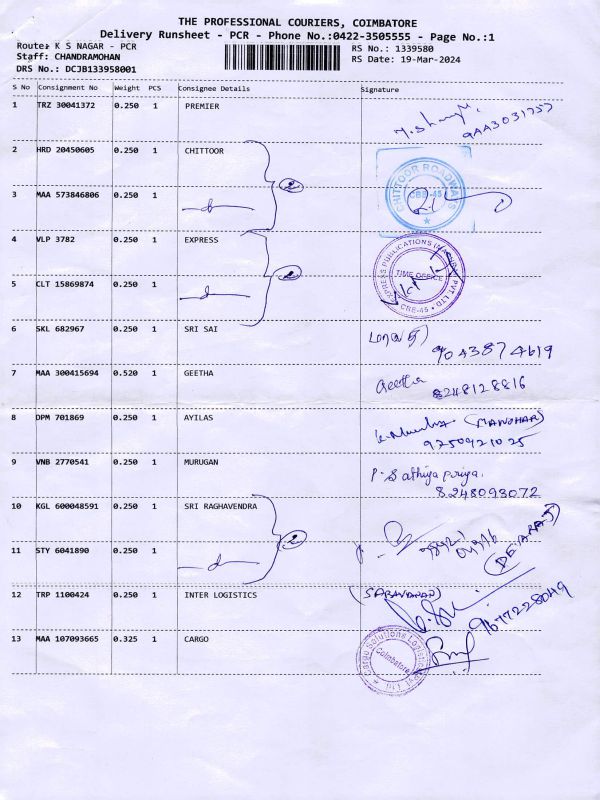 THE PROFESSIONAL COURIERS, COIMBATORE
Delivery Runsheet - PCR - Phone No.:0422-3505555 - Page No.:1
Route: K S NAGAR - PCR
RS No.: 1339580
Staff: CHANDRAMOHAN
RS Date: 19-Mar-2024
DRS No.: DCJB133958001
S No Consignment No Weight PCS Consignee Details Signature
1 TRZ 30041372 0.250 1 PREMIER
9AA3031757
2 HRD 20450605 0.250 1 CHITTOOR
2
CHITTOOR ROADWAYS
CBE-45
3 MAA 573846806 0.250 1
4 VLP 3782 0.250 1 EXPRESS
2
EXPRESS PUBLICATIONS (MADURAI) PVT LTD
TIME OFFICE
CBE-45
5 CLT 15869874 0.250 1
6 SKL 682967 0.250 1 SRI SAI
9043874619
7 MAA 300415694 0.520 1 GEETHA Geetha
8248128816
8 DPM 701869 0.250 1 AYILAS (MANOHAR)
9250921025
9 VNB 2770541 0.250 1 MURUGAN P. Sathiya priya.
8248093072
10 KGL 600048591 0.250 1 SRI RAGHAVENDRA
2
11 STY 6041890 0.250 1
12 TRP 1100424 0.250 1 INTER LOGISTICS (SARAVANAN)
9677228049
13 MAA 107093665 0.325 1 CARGO
Cargo Solutions Logistics Pvt. Ltd.
Coimbatore